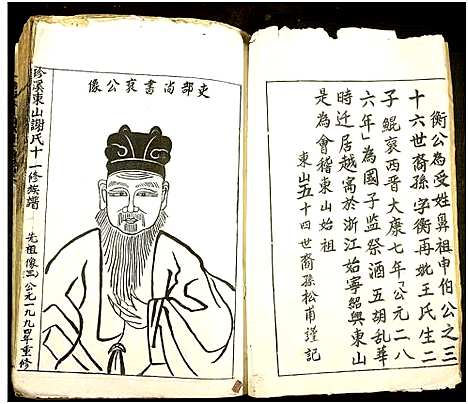 衡公為受姓鼻祖申伯公之三
十六世裔孫字衡再妣王氏生二
子鯤裒西晋大康七年「公元二八
六年」為國子監祭酒五胡乱華
時迁居越寓於浙江始寧紹興東山
是為會稽東山始祖
東山五十四世裔孫松甫謹記
吏部尚書裒公像
珍溪東山謝氏十一修族譜
先祖像㈢
公元一九九四年重修